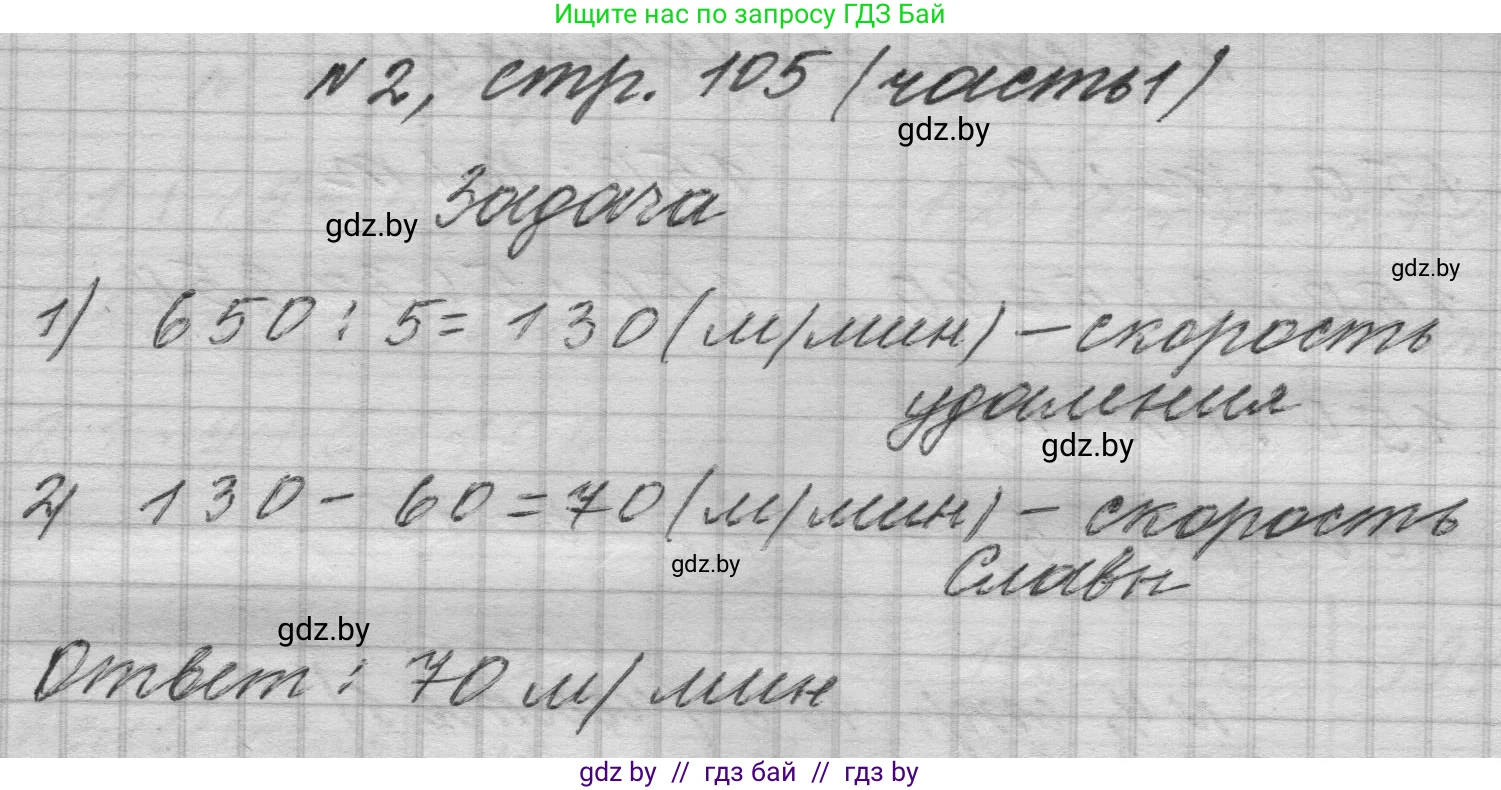 Ищите нас по запросу ГДЗ Бай
№2, стр. 105 (часть1)
gdz.by
Задача
gdz.by
gdz.by
1) 650 : 5 = 130 (м/мин) – скорость
удаления
gdz.by
2) 130 – 60 = 70 (м/мин) – скорость
Славы
gdz.by
gdz.by
Ответ: 70 м/мин
gdz by // гдз бай // гдз by